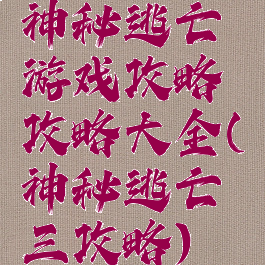 神秘逃亡
游戏攻略
攻略大全(
神秘逃亡
三攻略)